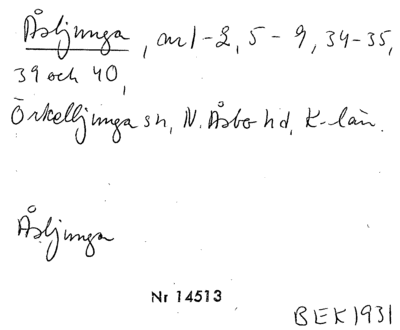 Åsljunga, nr 1-2, 5-9, 34-35,
39 och 40,
Örkelljunga sn, N. Åsbo hd, K-län.
Åsljunga
Nr 14513
BEK 1931